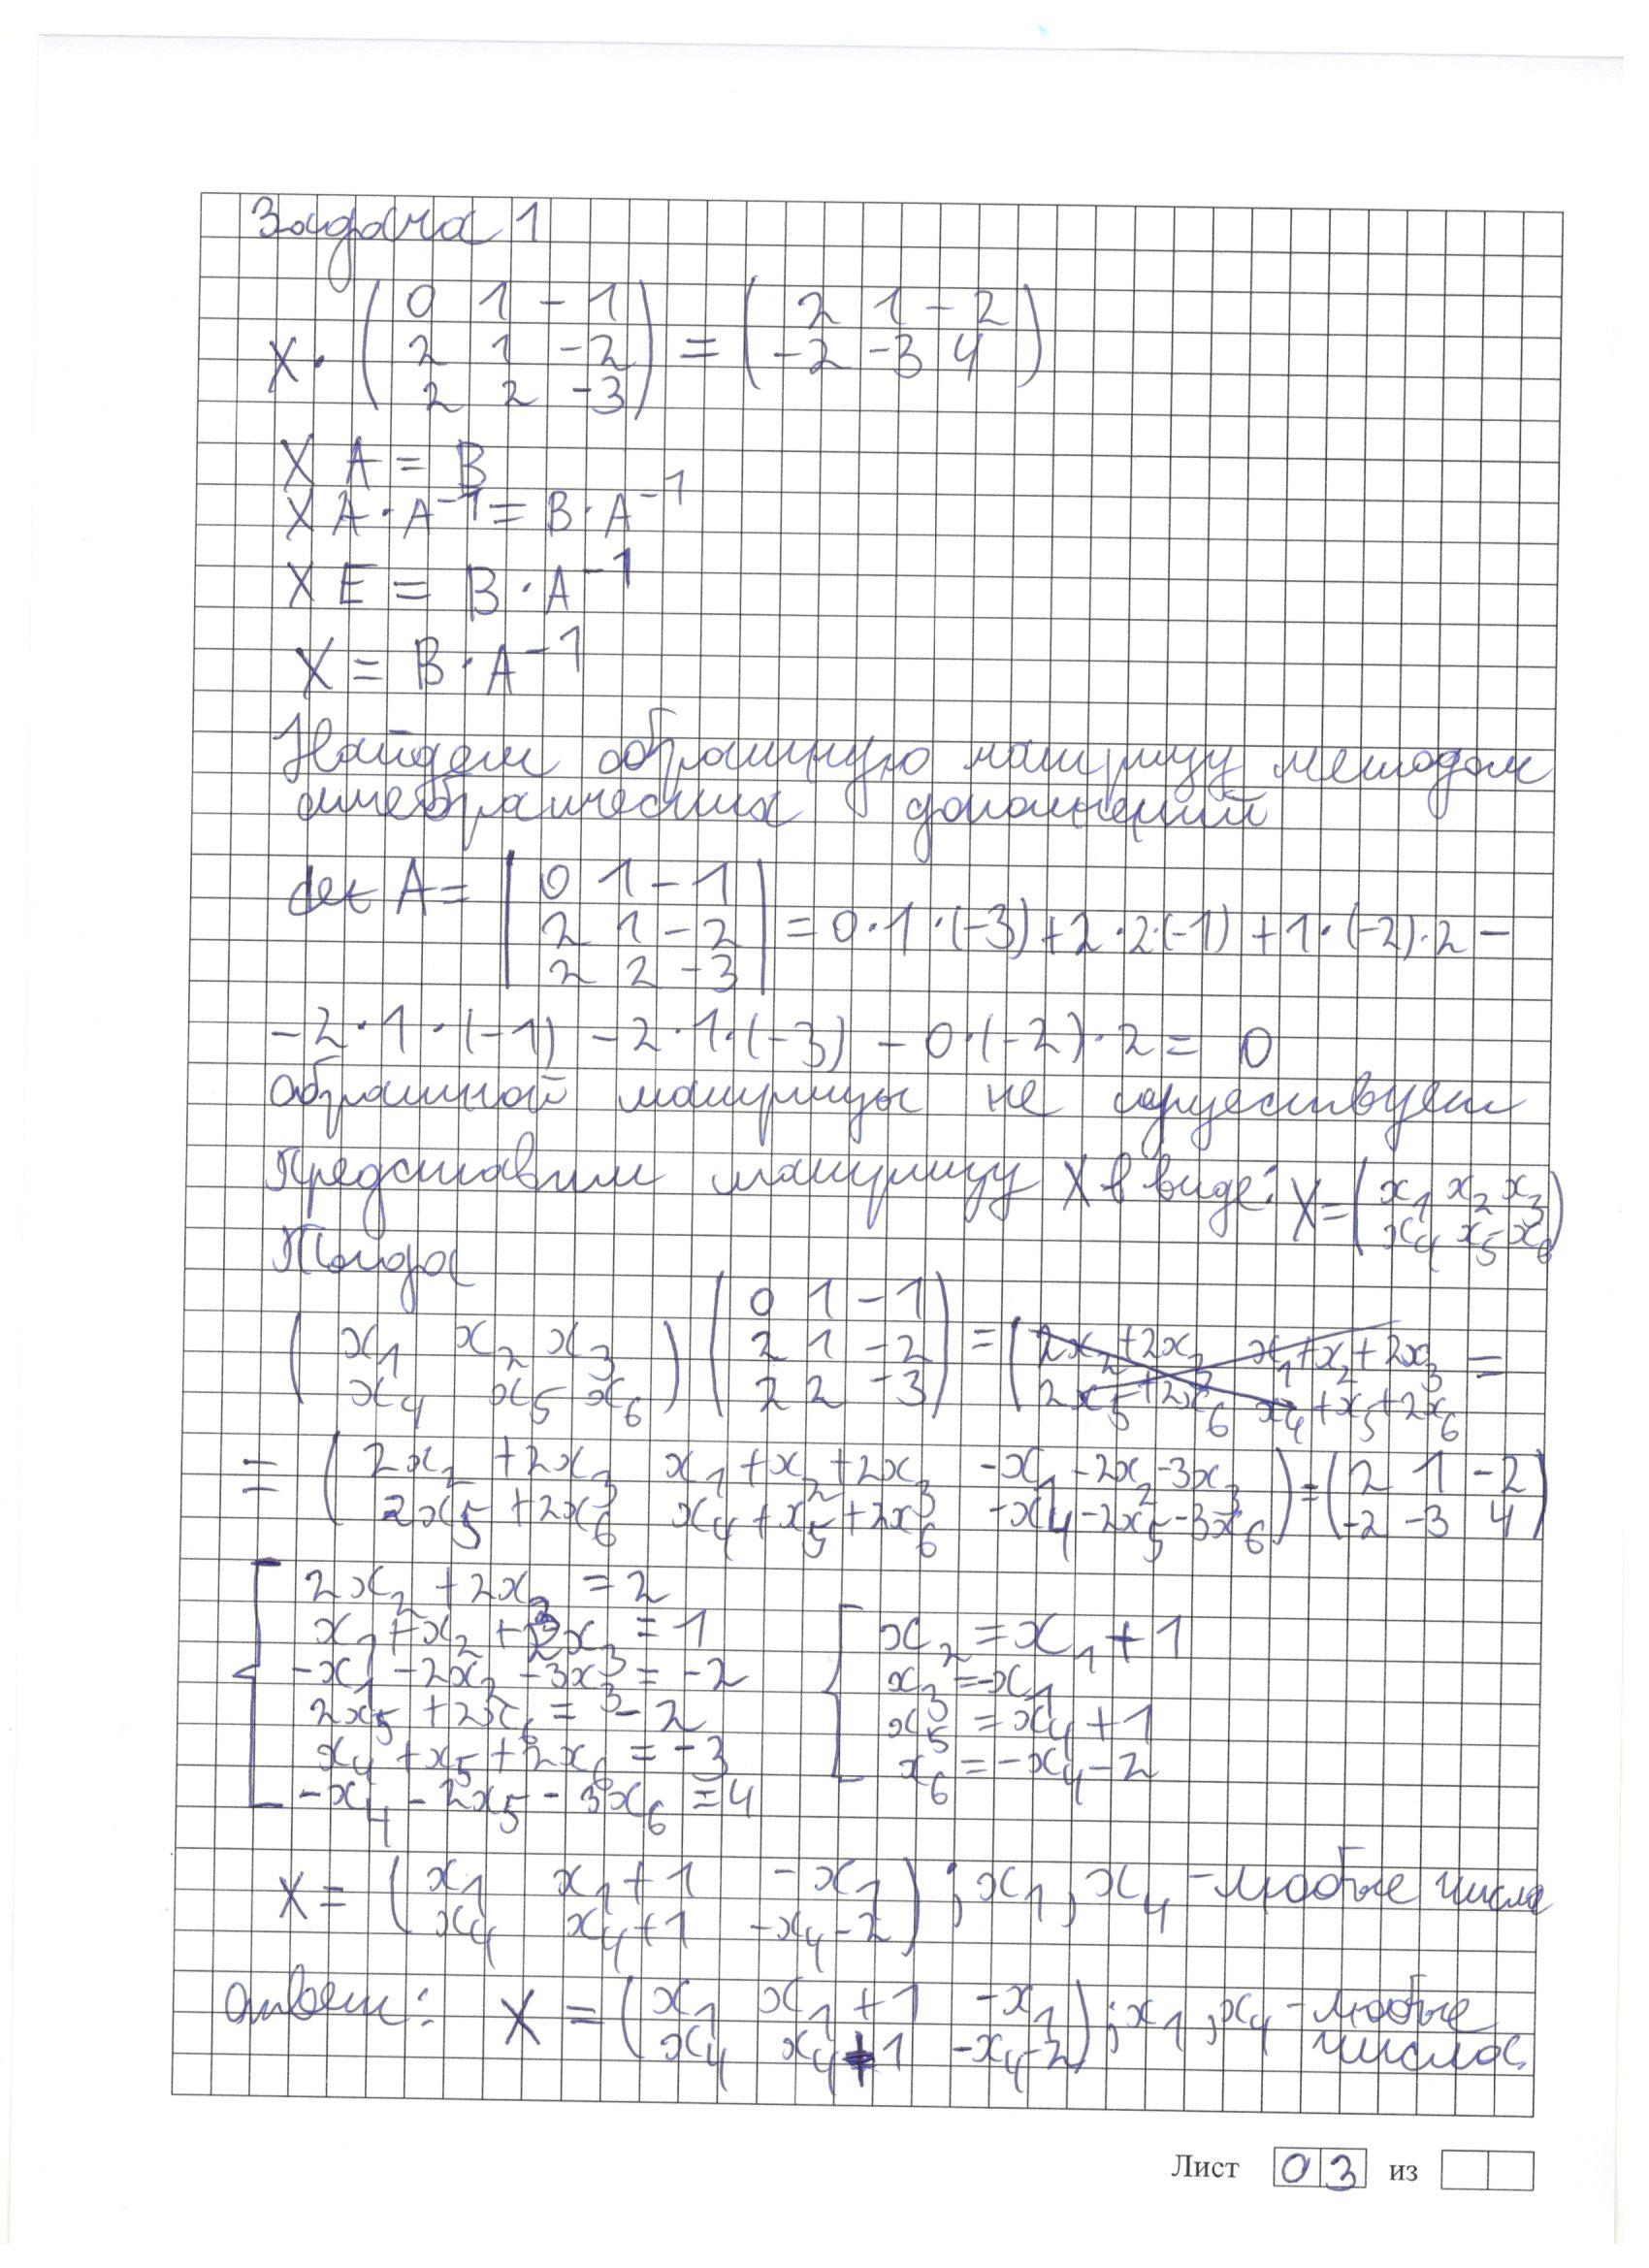 Задача 1
X · ( 0 1 -1 ; 2 1 -2 ; 2 2 -3 ) = ( 2 1 -2 ; -2 -3 4 )
X A = B
X A · A⁻¹ = B · A⁻¹
X E = B · A⁻¹
X = B · A⁻¹
Найдем обратную матрицу методом
алгебраических дополнений
det A = | 0 1 -1 ; 2 1 -2 ; 2 2 -3 | = 0·1·(-3) + 2·2·(-1) + 1·(-2)·2 -
-2·1·(-1) - 2·1·(-3) - 0·(-2)·2 = 0
Обратной матрицы не существует
Представим матрицу X в виде: X = ( x₁ x₂ x₃ ; x₄ x₅ x₆ )
Тогда
( x₁ x₂ x₃ ; x₄ x₅ x₆ ) ( 0 1 -1 ; 2 1 -2 ; 2 2 -3 ) = ( 2x₂+2x₃ x₁+x₂+2x₃ ; 2x₅+2x₆ x₄+x₅+2x₆ =
= ( 2x₂+2x₃ x₁+x₂+2x₃ -x₁-2x₂-3x₃ ; 2x₅+2x₆ x₄+x₅+2x₆ -x₄-2x₅-3x₆ ) = ( 2 1 -2 ; -2 -3 4 )
2x₂+2x₃ = 2
x₁+x₂+2x₃ = 1
-x₁-2x₂-3x₃ = -2
2x₅+2x₆ = -2
x₄+x₅+2x₆ = -3
-x₄-2x₅-3x₆ = 4
x₂ = x₁+1
x₃ = -x₁
x₅ = x₄+1
x₆ = -x₄-2
X = ( x₁ x₁+1 -x₁ ; x₄ x₄+1 -x₄-2 ) ; x₁, x₄ - любые числа
Ответ: X = ( x₁ x₁+1 -x₁ ; x₄ x₄+1 -x₄-2 ) ; x₁, x₄ - любые
числа.
Лист 03 из